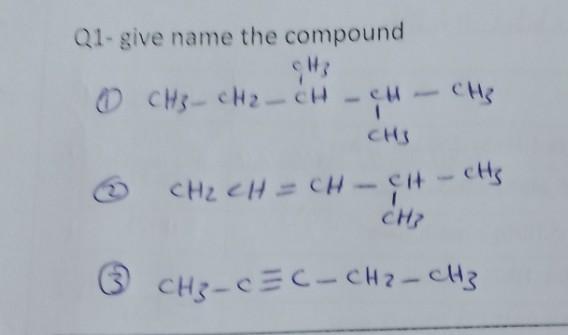 Q1- give name the compound
CH3
① CH3 - CH2 - CH - CH - CH3
CH3
② CH2 CH = CH - CH - CH3
CH3
③ CH3 - C ≡ C - CH2 - CH3